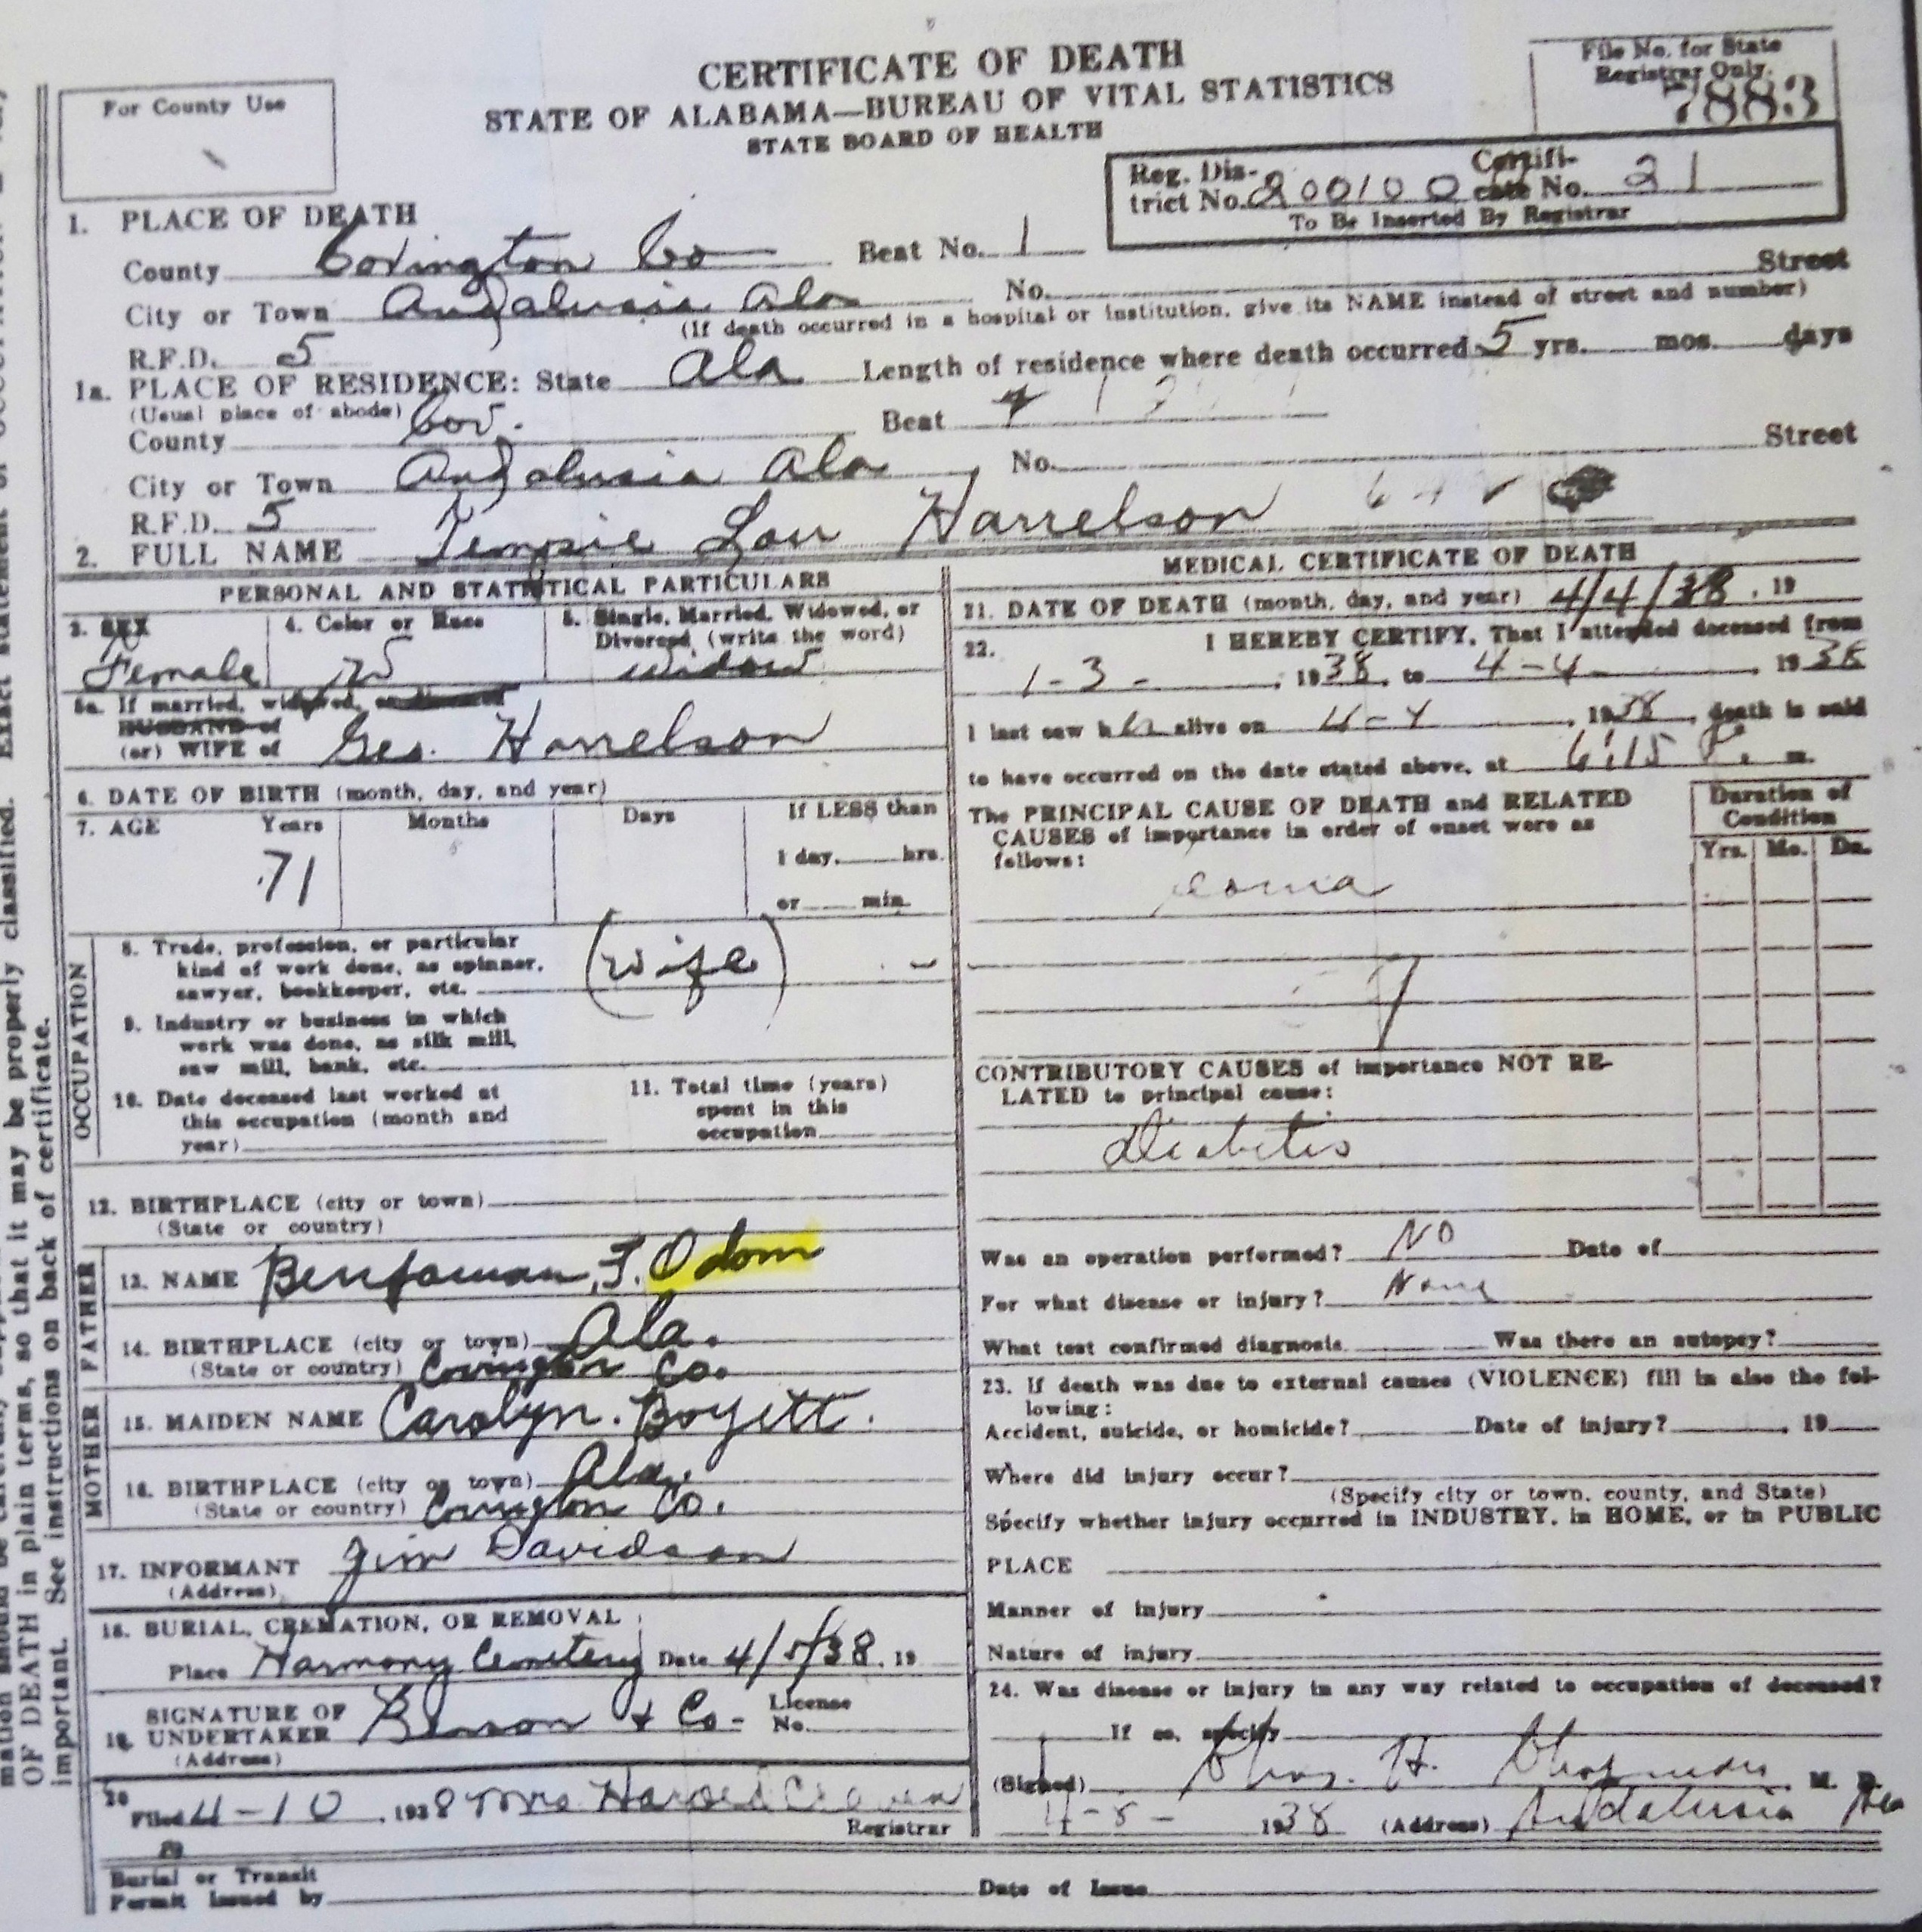 CERTIFICATE OF DEATH
STATE OF ALABAMA—BUREAU OF VITAL STATISTICS
STATE BOARD OF HEALTH
For County Use
File No. for State
Registrar Only.
7883
Reg. Dis-
trict No. 200100 Certifi-
cate No. 21
To Be Inserted By Registrar
1. PLACE OF DEATH
County Covington Co Beat No. 1
City or Town Andalusia Ala No. Street
(If death occurred in a hospital or institution, give its NAME instead of street and number)
R.F.D. 5
Length of residence where death occurred 5 yrs. mos. days
1a. PLACE OF RESIDENCE: State Ala
(Usual place of abode)
County Cov. Beat
City or Town Andalusia Ala No. Street
R.F.D. 5
2. FULL NAME Tempie Lou Harrelson
PERSONAL AND STATISTICAL PARTICULARS
3. SEX
Female
4. Color or Race
W
5. Single, Married, Widowed, or
Divorced, (write the word)
widow
5a. If married, widowed,
HUSBAND of
(or) WIFE of Geo. Harrelson
6. DATE OF BIRTH (month, day, and year)
7. AGE Years Months Days If LESS than
71
1 day, hrs.
or min.
OCCUPATION
8. Trade, profession, or particular
kind of work done, as spinner,
sawyer, bookkeeper, etc. (wife)
9. Industry or business in which
work was done, as silk mill,
saw mill, bank, etc.
10. Date deceased last worked at
this occupation (month and
year)
11. Total time (years)
spent in this
occupation
12. BIRTHPLACE (city or town)
(State or country)
FATHER
13. NAME Benjaman, F. Odom
14. BIRTHPLACE (city or town) Ala.
(State or country) Covington Co.
MOTHER
15. MAIDEN NAME Carolyn. Boyett.
16. BIRTHPLACE (city or town) Ala.
(State or country) Covington Co.
17. INFORMANT Jim Davidson
(Address)
18. BURIAL, CREMATION, OR REMOVAL
Place Harmony Cemetery Date 4/5/38, 19
19. SIGNATURE OF
UNDERTAKER Benson & Co- License
No.
(Address)
20 Filed 4-10, 1938 Mrs Harold Craven
Registrar
Burial or Transit
Permit Issued by Date of Issue
MEDICAL CERTIFICATE OF DEATH
21. DATE OF DEATH (month, day, and year) 4/4/38, 19
22. I HEREBY CERTIFY, That I attended deceased from
1-3-, 1938, to 4-4-, 1938
I last saw her alive on 4-4, 1938, death is said
to have occurred on the date stated above, at 6:15 P. m.
The PRINCIPAL CAUSE OF DEATH and RELATED
CAUSES of importance in order of onset were as
follows:
Duration of
Condition
Yrs. Mo. Da.
coma
CONTRIBUTORY CAUSES of importance NOT RE-
LATED to principal cause:
Diabetis
Was an operation performed? NO Date of
For what disease or injury? None
What test confirmed diagnosis. Was there an autopsy?
23. If death was due to external causes (VIOLENCE) fill in also the fol-
lowing:
Accident, suicide, or homicide? Date of injury? , 19
Where did injury occur?
(Specify city or town, county, and State)
Specify whether injury occurred in INDUSTRY, in HOME, or in PUBLIC
PLACE
Manner of injury
Nature of injury
24. Was disease or injury in any way related to occupation of deceased?
If so, specify
(Signed) Chas. H. M. D.
4-8- 1938 (Address) Andalusia Ala
OF DEATH in plain terms, so that it may be properly classified. Exact statement of
important. See instructions on back of certificate.